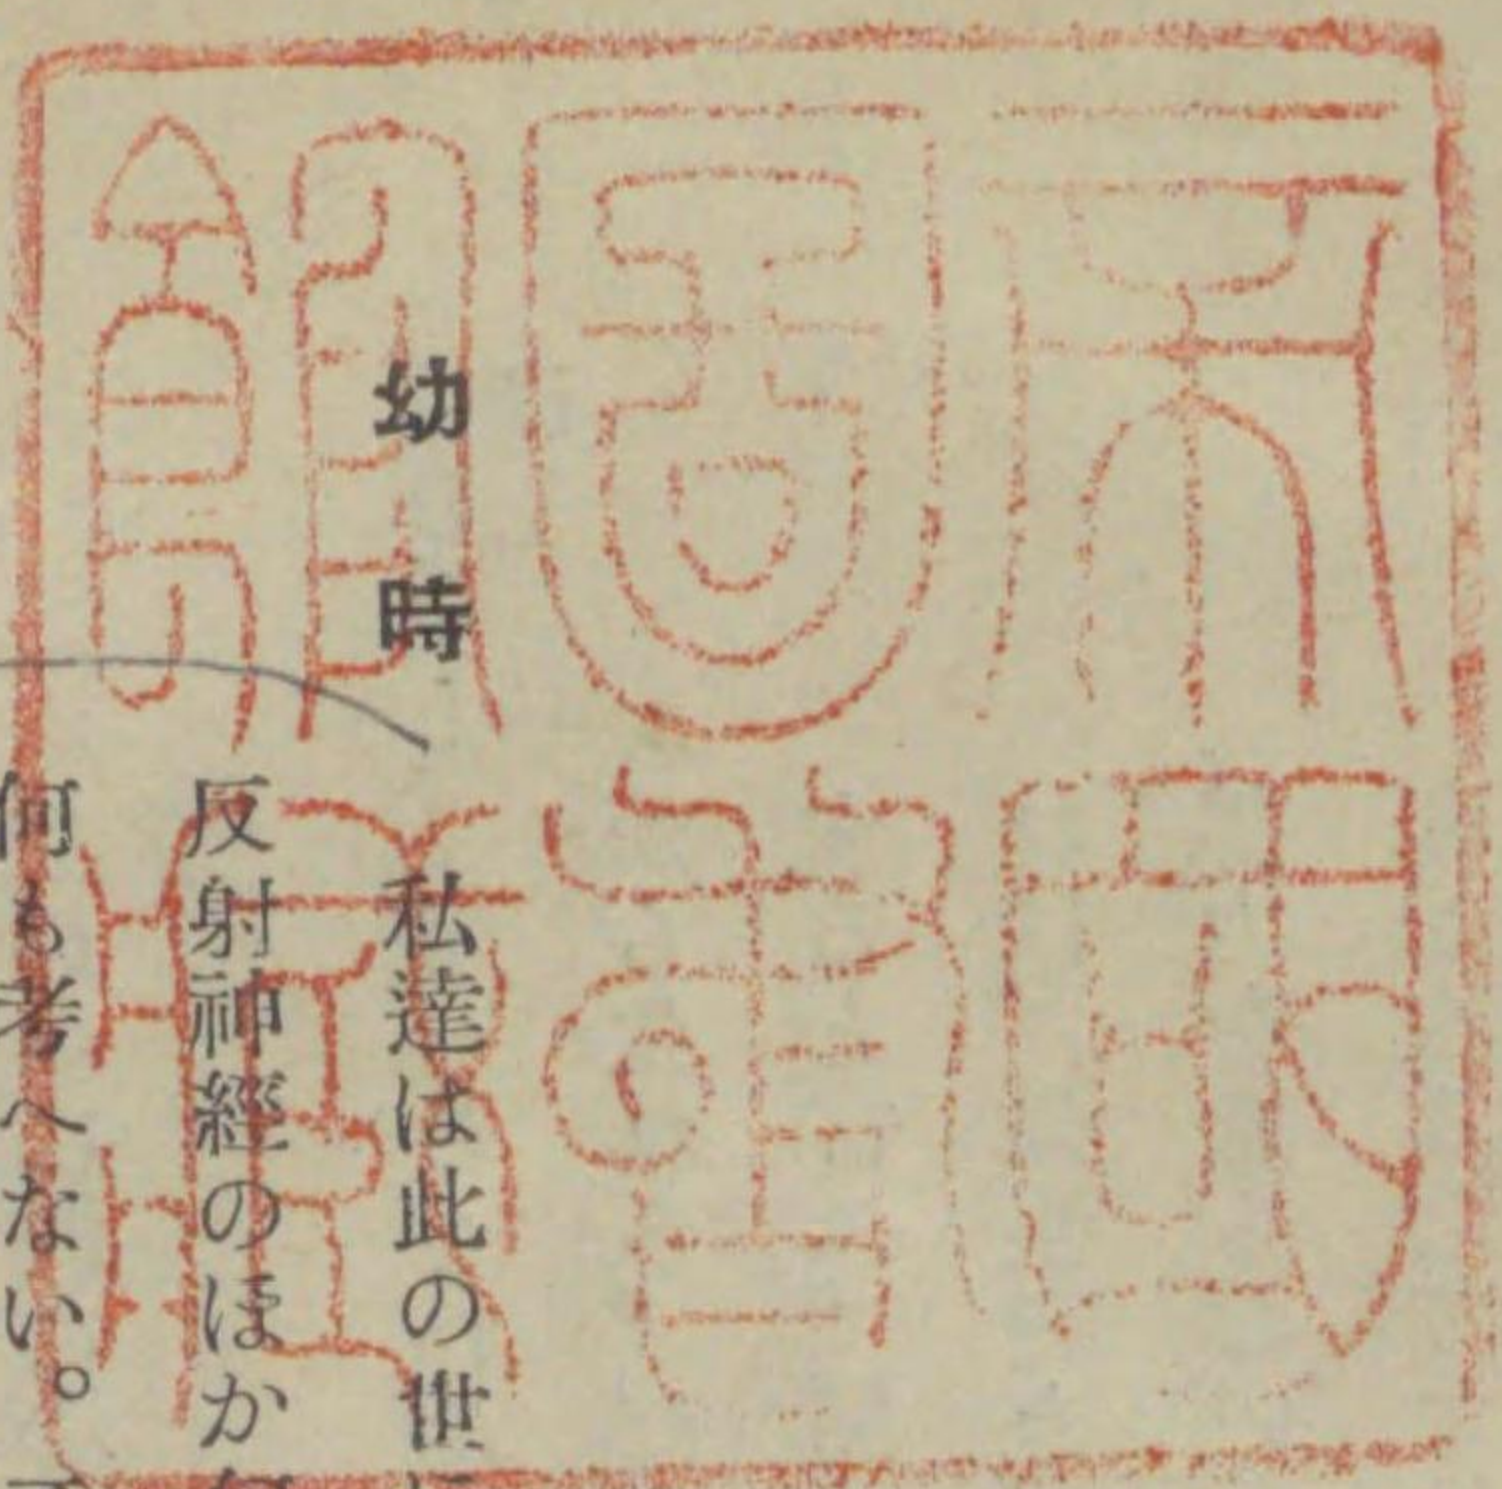 帝國
圖書
館藏
幼時
私達は此の世に
反射神經のほか
何も考へない。